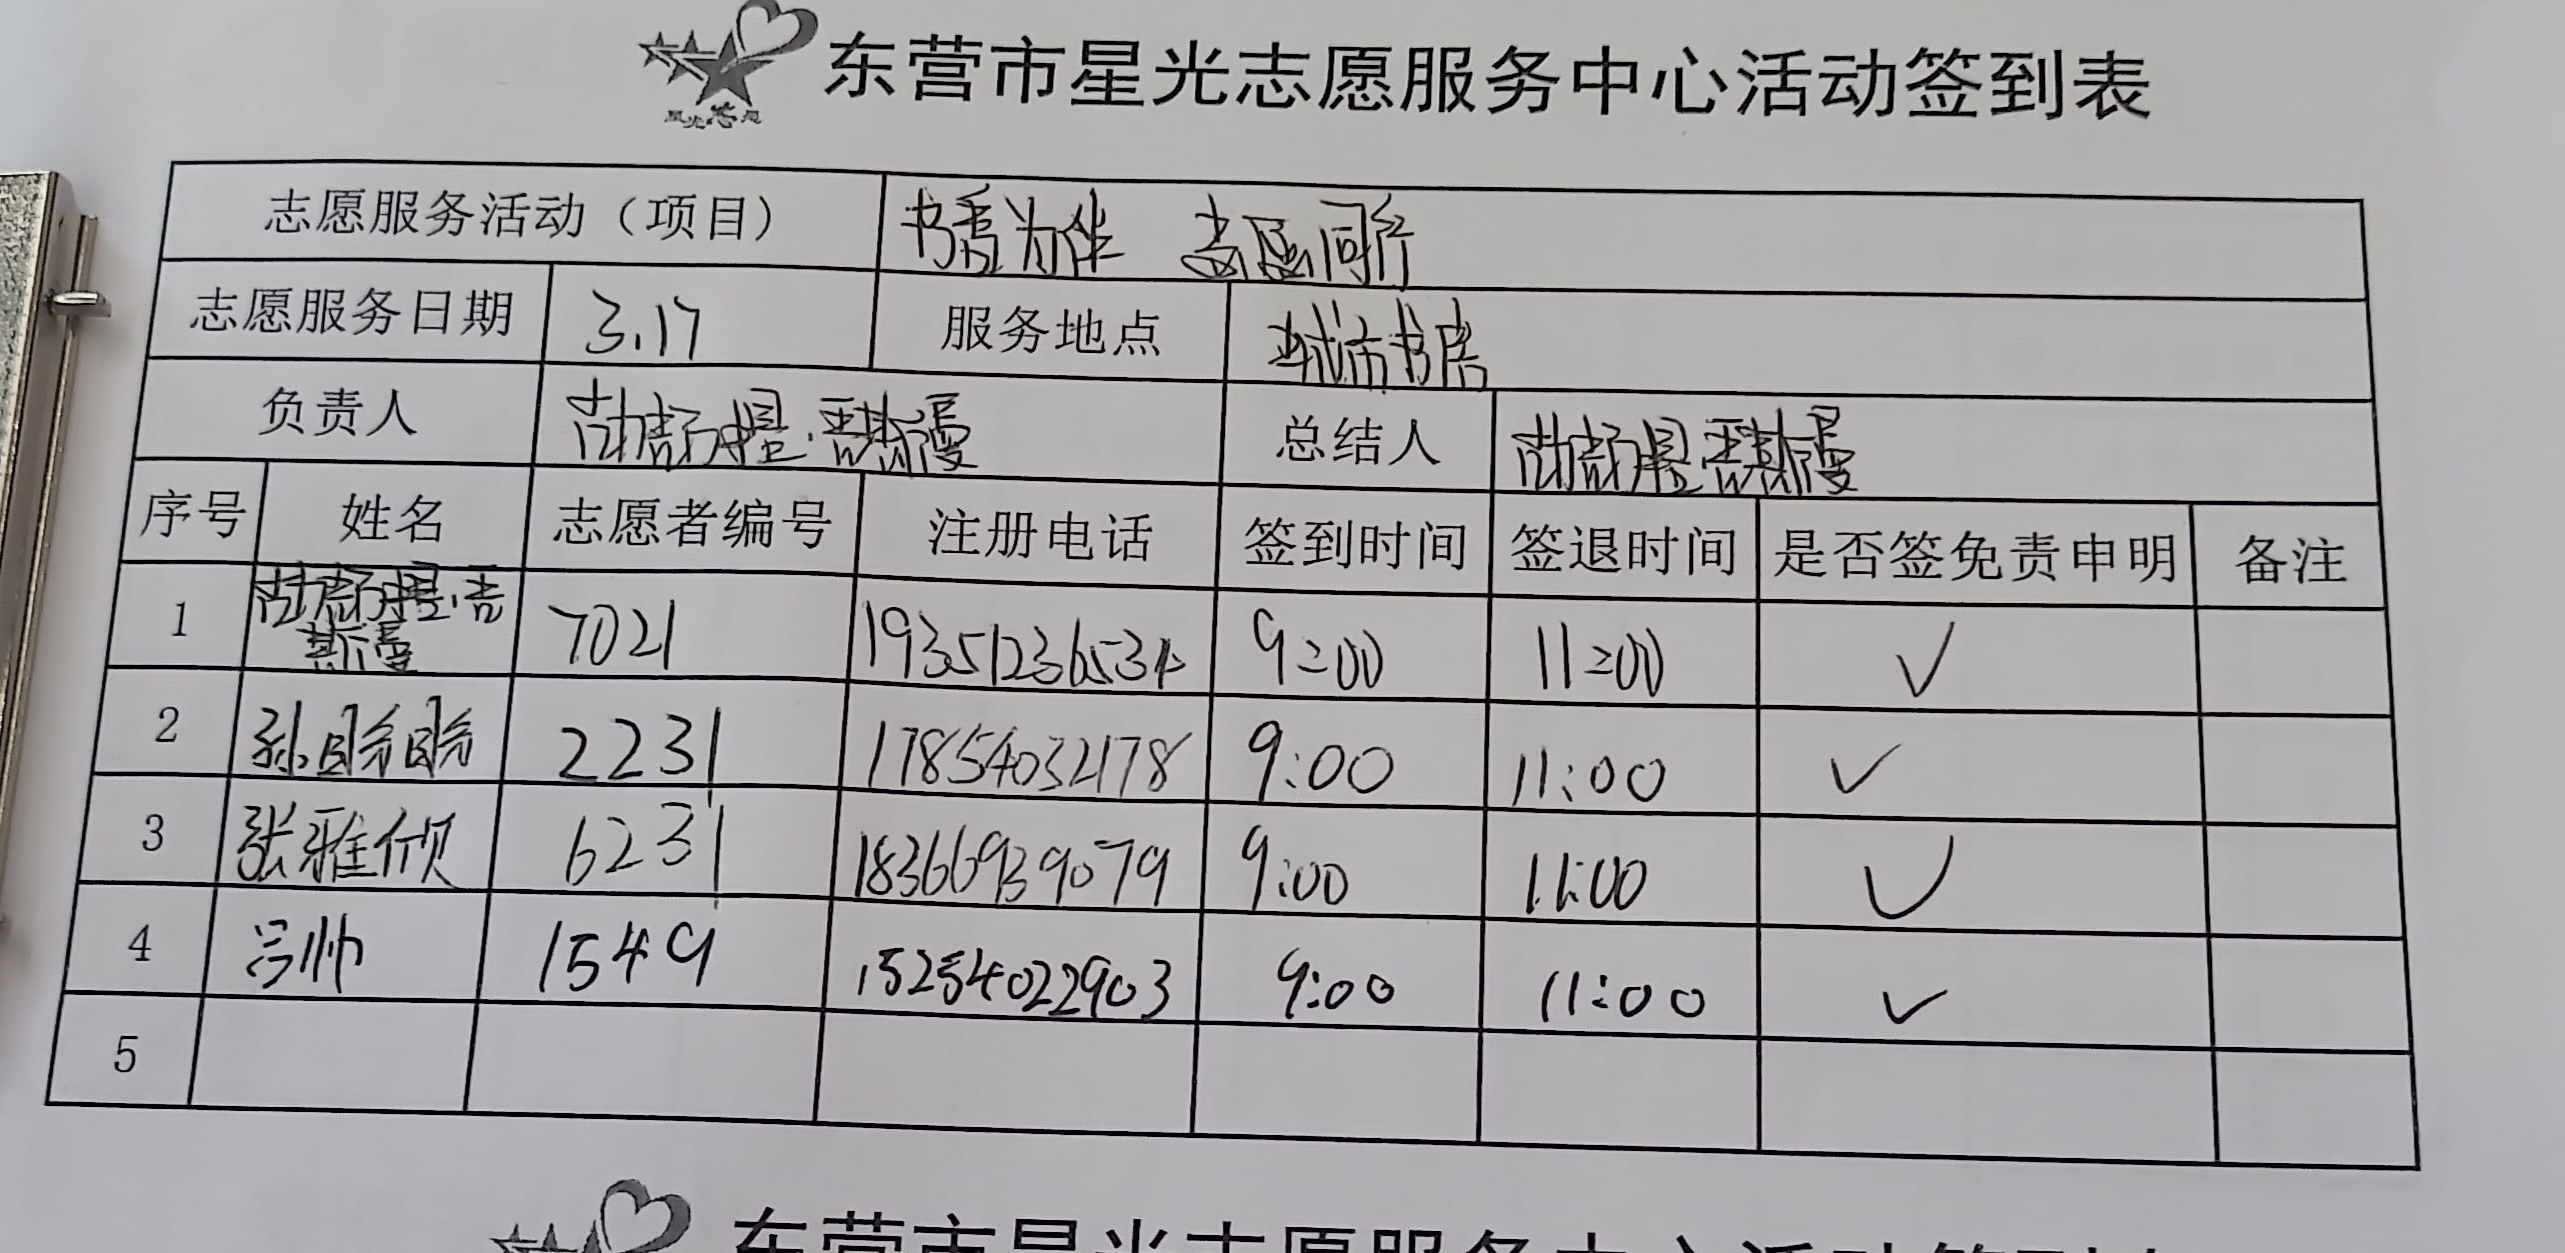 东营市星光志愿服务中心活动签到表
志愿服务活动（项目） 书香为伴 志愿同行
志愿服务日期 3.17 服务地点 城市书房
负责人 总结人
序号 姓名 志愿者编号 注册电话 签到时间 签退时间 是否签免责申明 备注
1 7021 19351236534 9:00 11:00 ✓
2 孙盼盼 2231 17854032178 9:00 11:00 ✓
3 张雅 6231 18366939079 9:00 11:00 ✓
4 吕帅 1549 15254022903 9:00 11:00 ✓
5
东营市星光志愿服务中心活动签到表